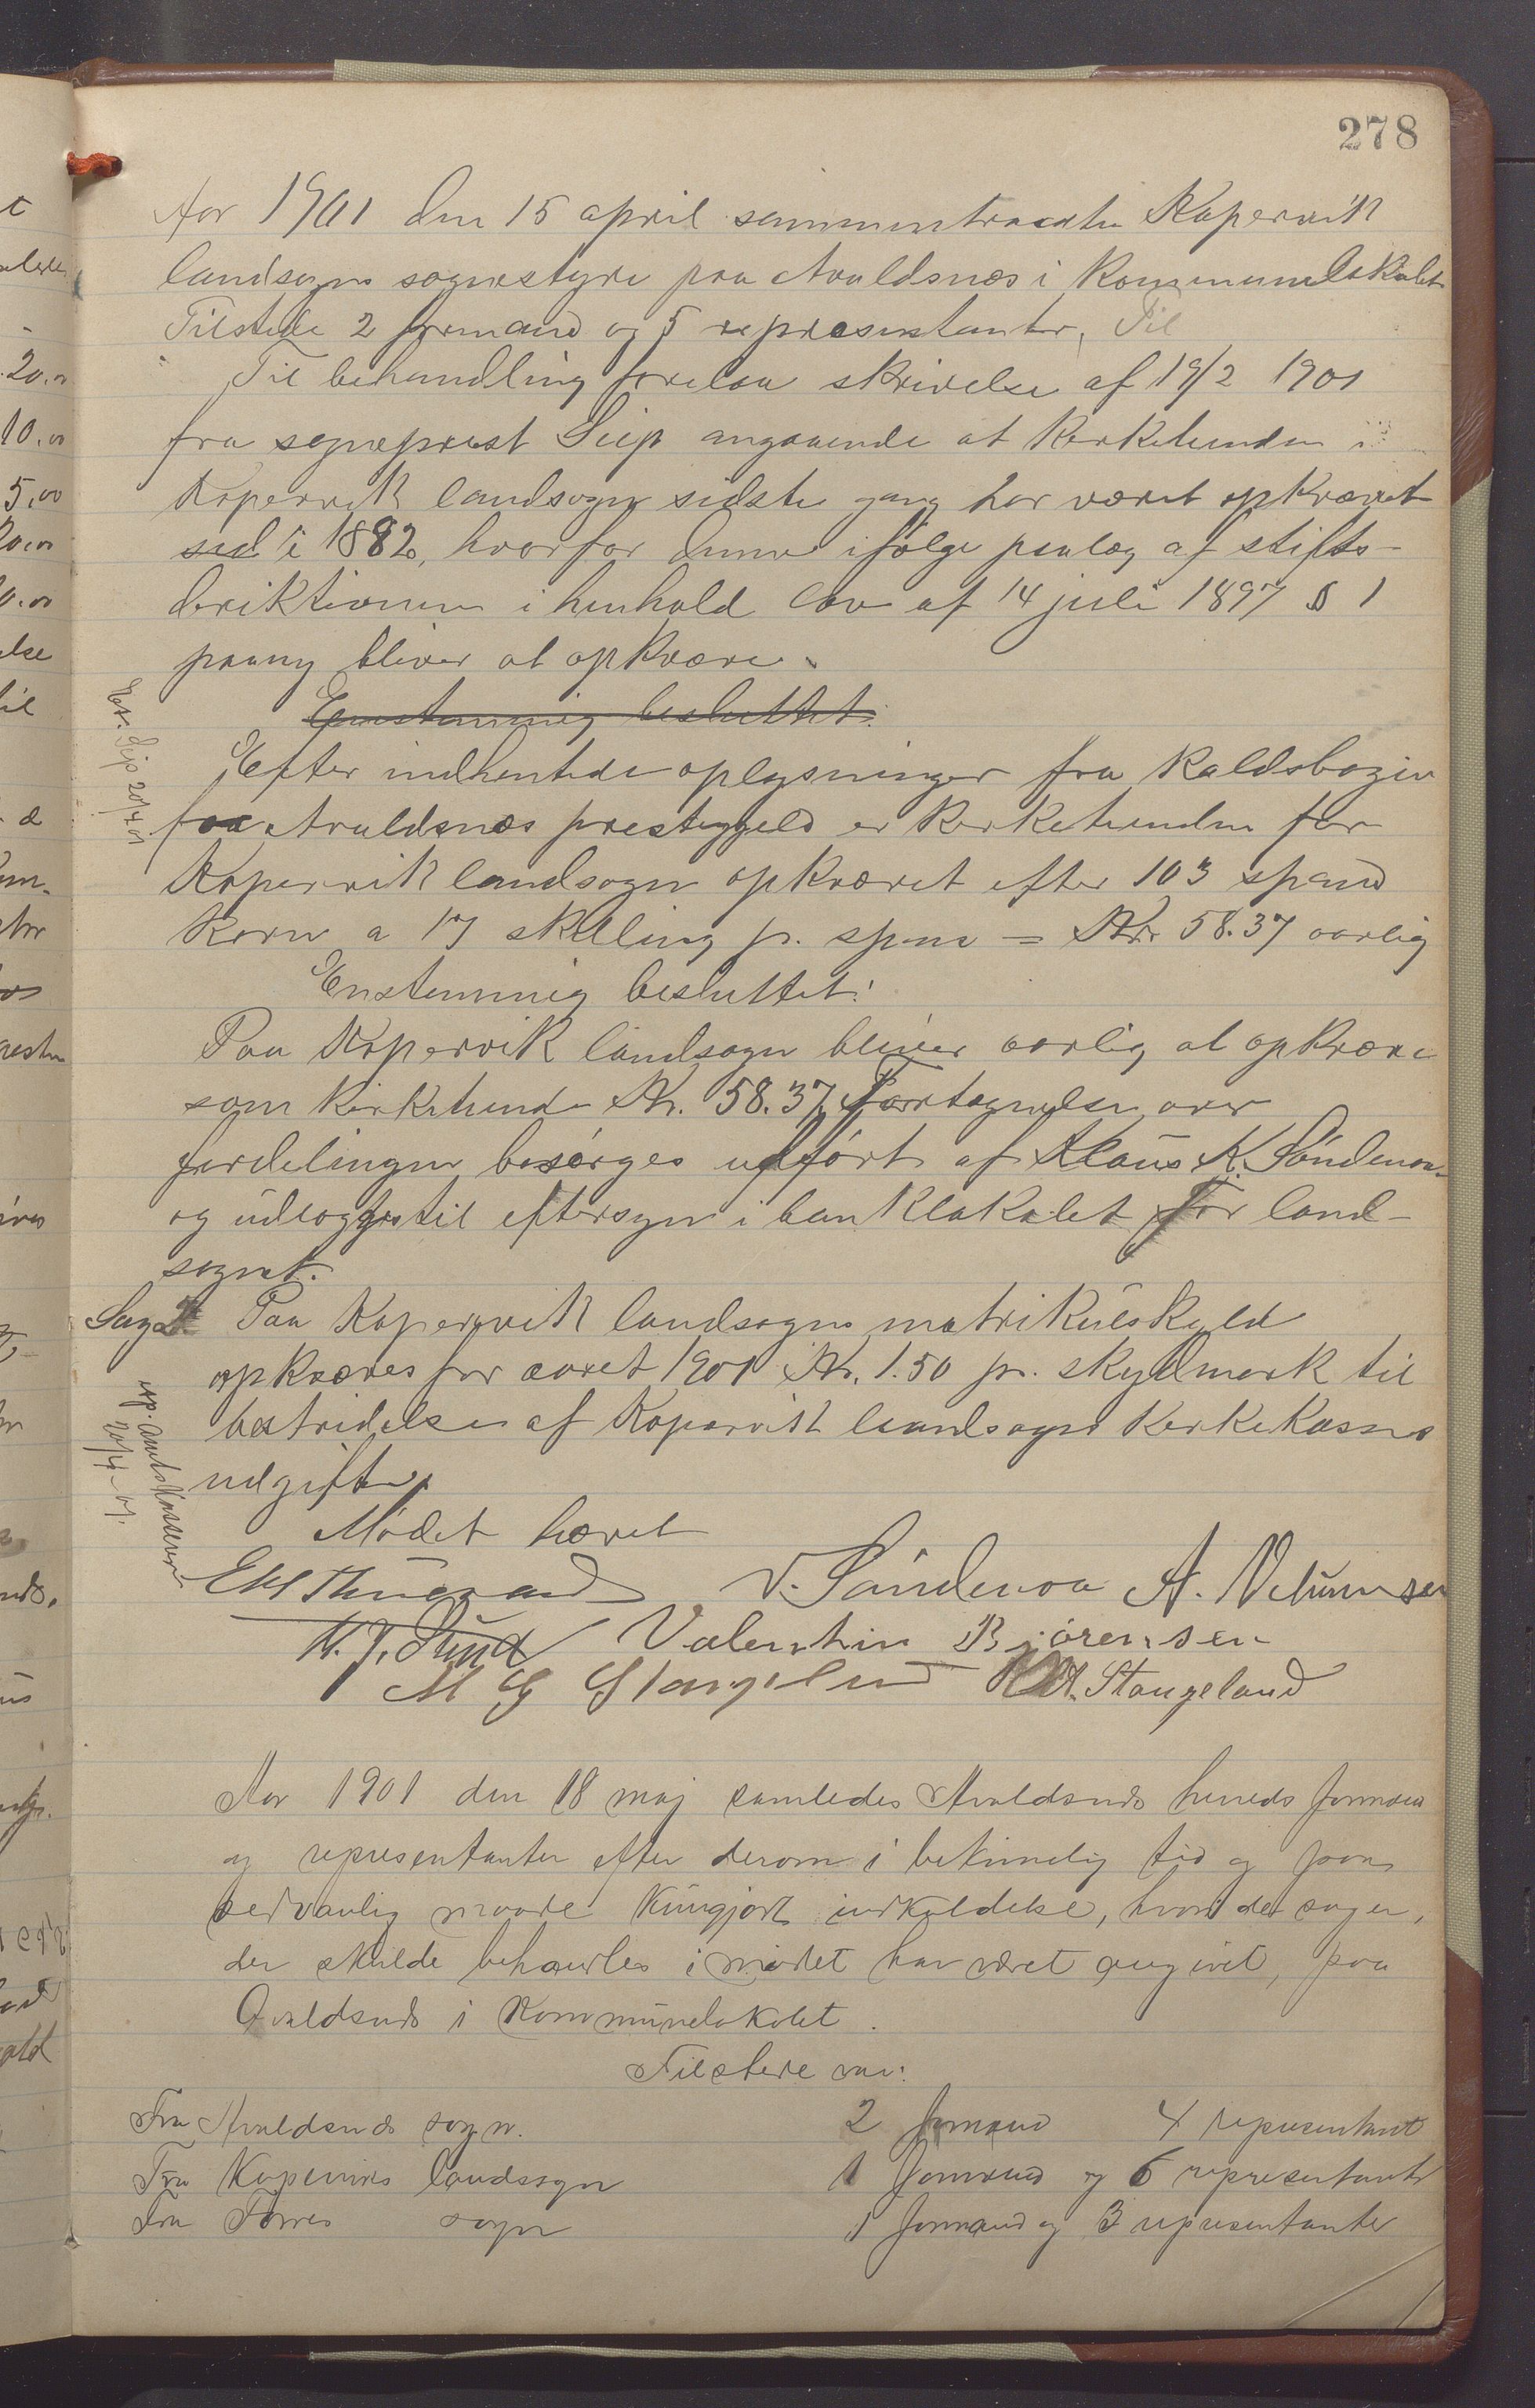 278
Aar 1901 den 15 april sammentraadte Kopervik
landsogns sognestyre paa Avaldsnæs i Kommunelokalet
Tilstede 2 formænd og 5 repræsentanter. Til
Til behandling forelaa skrivelse af 19/2 1901
fra sogneprest Seip angaaende at Kirketienden i
Kopervik landsogn sidste gang har været opkrævet
sid i 1882, hvorfor denne ifølge paalæg af stifts-
deriktionen i henhold lov af 14 juli 1897 § 1
paany bliver at opkræve.
Enstemmig besluttet:
Efter indhentede oplysninger fra Kaldsbogen
for Avaldsnæs prestegjeld er Kirketienden for
Kopervik landsogn opkrævet efter 103 spand
Korn a 17 skilling pr. span = Kr. 58.37 aarlig
Enstemmig besluttet:
Paa Kopervik landsogn bliver aarlig at opkræve
som Kirketiende Kr. 58.37. Fortegnelse over
fordelingen besørges udført af Klaus K. Sündenaa
og udlægges til eftersyn i banklokalet for land-
sognet.
Ex. Seip 20/4 01
Sag 2 Paa Kopervik landsogns matrikulskyld
opkræves for aaret 1901 Kr. 1.50 pr. skyldmark til
bestridelse af Kopervik landsogns Kirkekasses
udgifter.
exp. amtskasserer
20/4-01.
Mødet hævet
V. Sündenaa A.
Valentin Bjørensen
M G Stangeland Stangeland
Aar 1901 den 18 maj samledes Avaldsnæs herreds formæn
og representanter efter derom i betimelig tid og paa
sedvanlig maade kungjort indkaldelse, hvori de sager,
der skulde behandles i mødet har været angivet, paa
Avaldsnæs i Kommunelokalet.
Tilstede var:
Fra Avaldsnæs sogn. 2 formænd 4 representant
Fra Koperviks landssogn 1 formand og 6 representanter
Fra Torves sogn 1 formand og 3 representanter